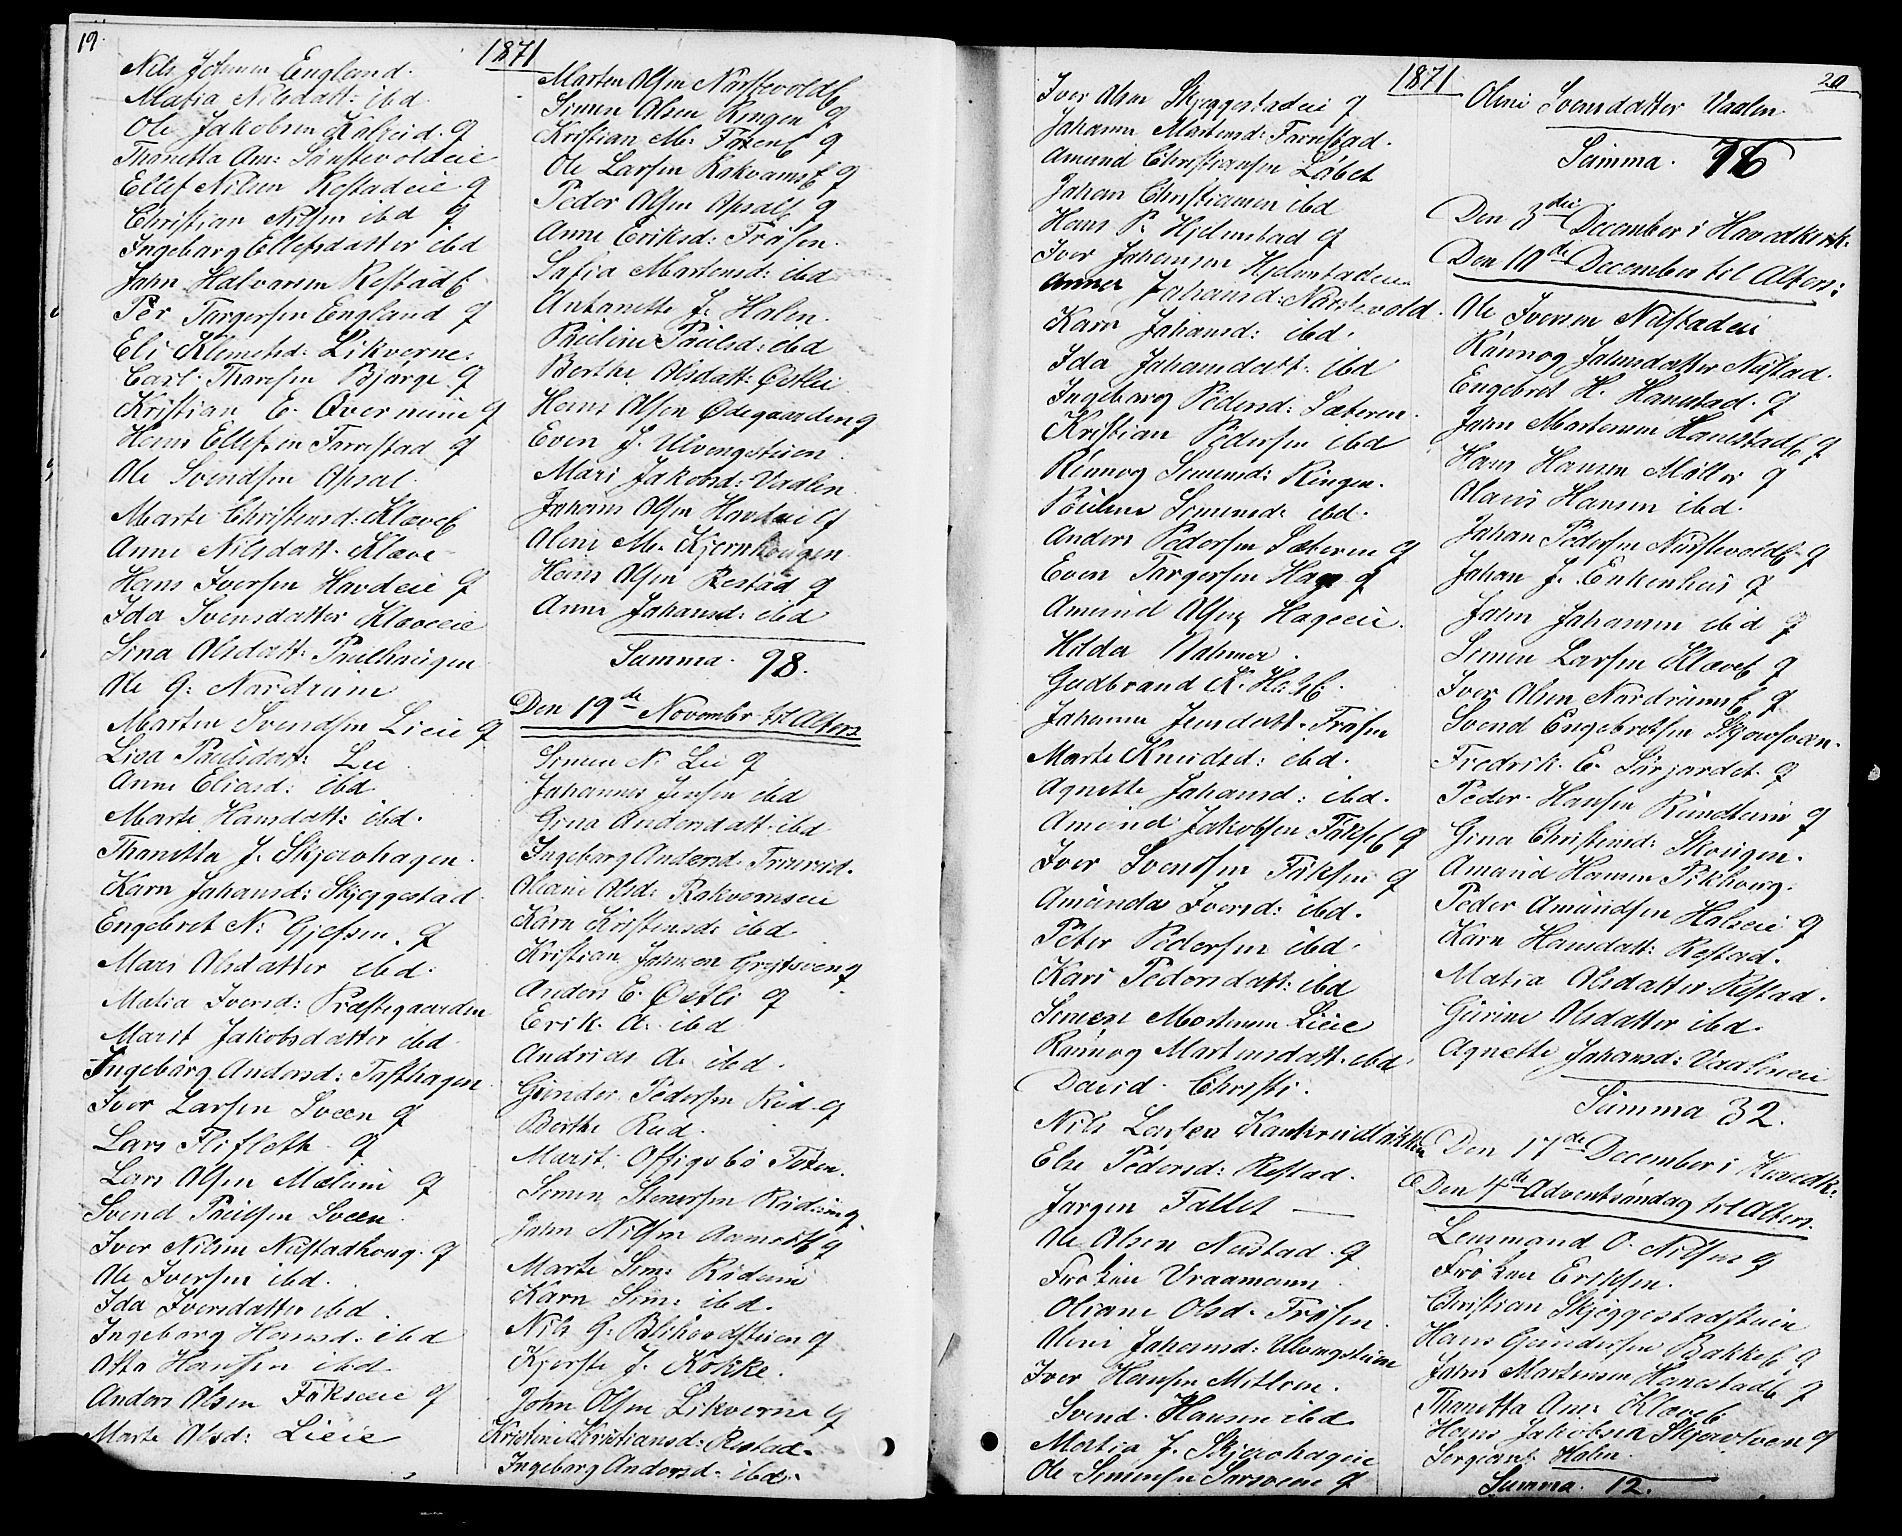 19.
1871
Nils Johnsen England.
Matia Nilsdatt: ibd.
Ole Jakobsen Kalreid. q
Thonetta Am: Sønstevoldeie
Ellef Nilsen Restadeie q
Christian Nilsen ibd q
Ingeborg Ellefsdatter ibd
John Halvorsen Restad
Per Torgersen England q
Eli Klemetsd: Likverne.
Carl Thoresen Bjørge q
Kristian E. Overmine q
Hans Ellefsen Farrestad q
Ole Svendsen Opsal.
Marte Christensd: Klæve
Anne Nilsdatt. Klæve
Hans Iversen Havdeie q
Ida Svensdatter Klæveeie
Sina Olsdatt: Poulhaugen
Ole G: Nordrum
Marten Svendsen Lieie q
Lisa Paulsdatt: Lie
Anne Eliasd: ibd
Marte Hansdatt: ibd.
Thonetta J. Skjævhagen.
Karn Johansd: Skjeggestad
Engebret N: Gjefsen. q
Mari Olsdatter ibd.
Matia Iversd: Præstegaarden
Marit Jakobsdatter ibd
Ingeborg Andersd: Tofthagen
Iver Larsen Sveen q
Lars Flifleth q
Lars Olsen Mælum q
Svend Paulsen Sveen.
Iver Nilsen Nustadhoug. q
Ole Iversen ibd.
Ida Iversdatter ibd.
Ingeborg Hansd. ibd
Otto Hansen ibd.
Anders Olsen Fokseeie q
Marte Olsd: Lieie
Marten Olsen Norstevold
Simen Olsen Ringen q
Kristian M: Foxen q
Ole Larsen Rakvams q
Peder Olsen Opsal q
Anne Eriksd: Frøsen.
Sofia Martensd: ibd
Antonette J. Holen.
Pauline Paulsd: ibd
Berthe Olsdatt: Østlie
Hans Olsen Ødegaarden q
Even J. Ulvengstuen.
Mari Jakobsd: Vaalen.
Johans Olsen Havdeie q
Oline M. Kjernhougen
Hans Olsen Restad q
Anne Johansd: ibd
Summa. 98.
Den 19de Novembr til Alters
Simen N. Lie q
Johannes Jensen ibd
Grna Andersdatt. ibd.
Ingeborg Andersd. Trnrud.
Oliane Olsd: Rakvomseie
Karn Kristensd: ibd
Kristian Johnsen Grejtsven q
Anders E. Østli q
Erik. A. ibd
Andrias A. ibd.
Gunder Pedersen Rød. q
Berthe Rud.
Marit. Offigsbø Foxen.
Simen Stenersen Rødum q
John Nilsen Aamodt q
Marte Sim: Rødum
Karn Sim: ibd.
Nils G. Blihovdstuen q
Kjersti J. Kokke.
John Olsen Likverne q
Kristine Kristiansd: Restad.
Ingeborg Andersd. ibd.
1871
20
Iver Olsen Skjeggestadeie q
Johanne Martensd: Farrestad.
Amund Christiansen Løbet
Johan Christiansen ibd
Hans P. Hjelmstad q
Iver Johansen Hjelmstadeie
Anne Johansd: Norstevold.
Karn Johansd: ibd.
Ida Johansdatt. ibd
Ingeborg Pedersd: Sæteren.
Kristian Pedersen ibd
Rønnog Simensd: Ringen.
Pauline Simensd: ibd.
Anders Pedersen Sæteren q
Even Torgersen Hage q
Amund Olsen Hageeie.
Hilda Dahmer.
Gudbrand K. Hage.
Johanne Jensdatt. Frøsen
Marte Knudsd: ibd.
Agnette Johansd: ibd.
Amund Jakobsen Fokse q
Iver Svendsen Foksen q
Amunda Iversd: ibd.
Peter Pedersen ibd.
Kari Pedersdatt: ibd
Simen Mortensen Lieie
Rønnog Martensdatt. ibd.
David. Christi.
Nils Larsen Kankerudbakken
Else Pedersd: Restad.
Jørgen Fallet —
Ole Olsen Nustad. q
Frøken Vraamann
Oliane Olsd. Frøsen.
Oline Johansd: Ulvengstuen
Iver Hansen Mitlien.
Svend. Hansen ibd
Martia J. Skjævhageeie
Ole Simensen Sørsveen q
Oline Svensdatter Vaalen
Summa. 76
Den 3die December i Hovedkirk.
Den 10de December til Alters:
Ole Iversen Nustadeie
Rønnog Johnsdatter Nustad.
Engebret H. Hanestad. q
John Martensen Hanestad q
Hans Hansen Møller q
Olaus Hansen ibd.
Johan Pedersen Nustevold q
Johan J. Enkenhus q
John Johansen ibd q
Simen Larsen Klæve q
Iver Olsen Nordrum q
Svend Engebretsen Skjævsveen.
Fredrik. E. Sørjordet. q
Peder Hansen Rundtom q
Gina Christensd: Skougen.
Amund Hansen Pikhoug.
Peder Amundsen Holseie q
Karn Hansdatt: Restad.
Matia Olsdatter Restad.
Gurine Olsdatter ibd.
Agnette Johansd: Vaaleneie
Summa 32.
Den 17de December i Hovedk:
Den 4de Adventsøndag til Alters.
Lensmand O. Nilsen q
Frøken Eriksen.
Christian Skjeggestadstuen
Hans Gundersen Bakke q
John Mortensen Hanestad q
Thonetta Am: Klæve.
Hans Jakobsen Skjævsveen q
Sergeant Holen
Summa. 12.